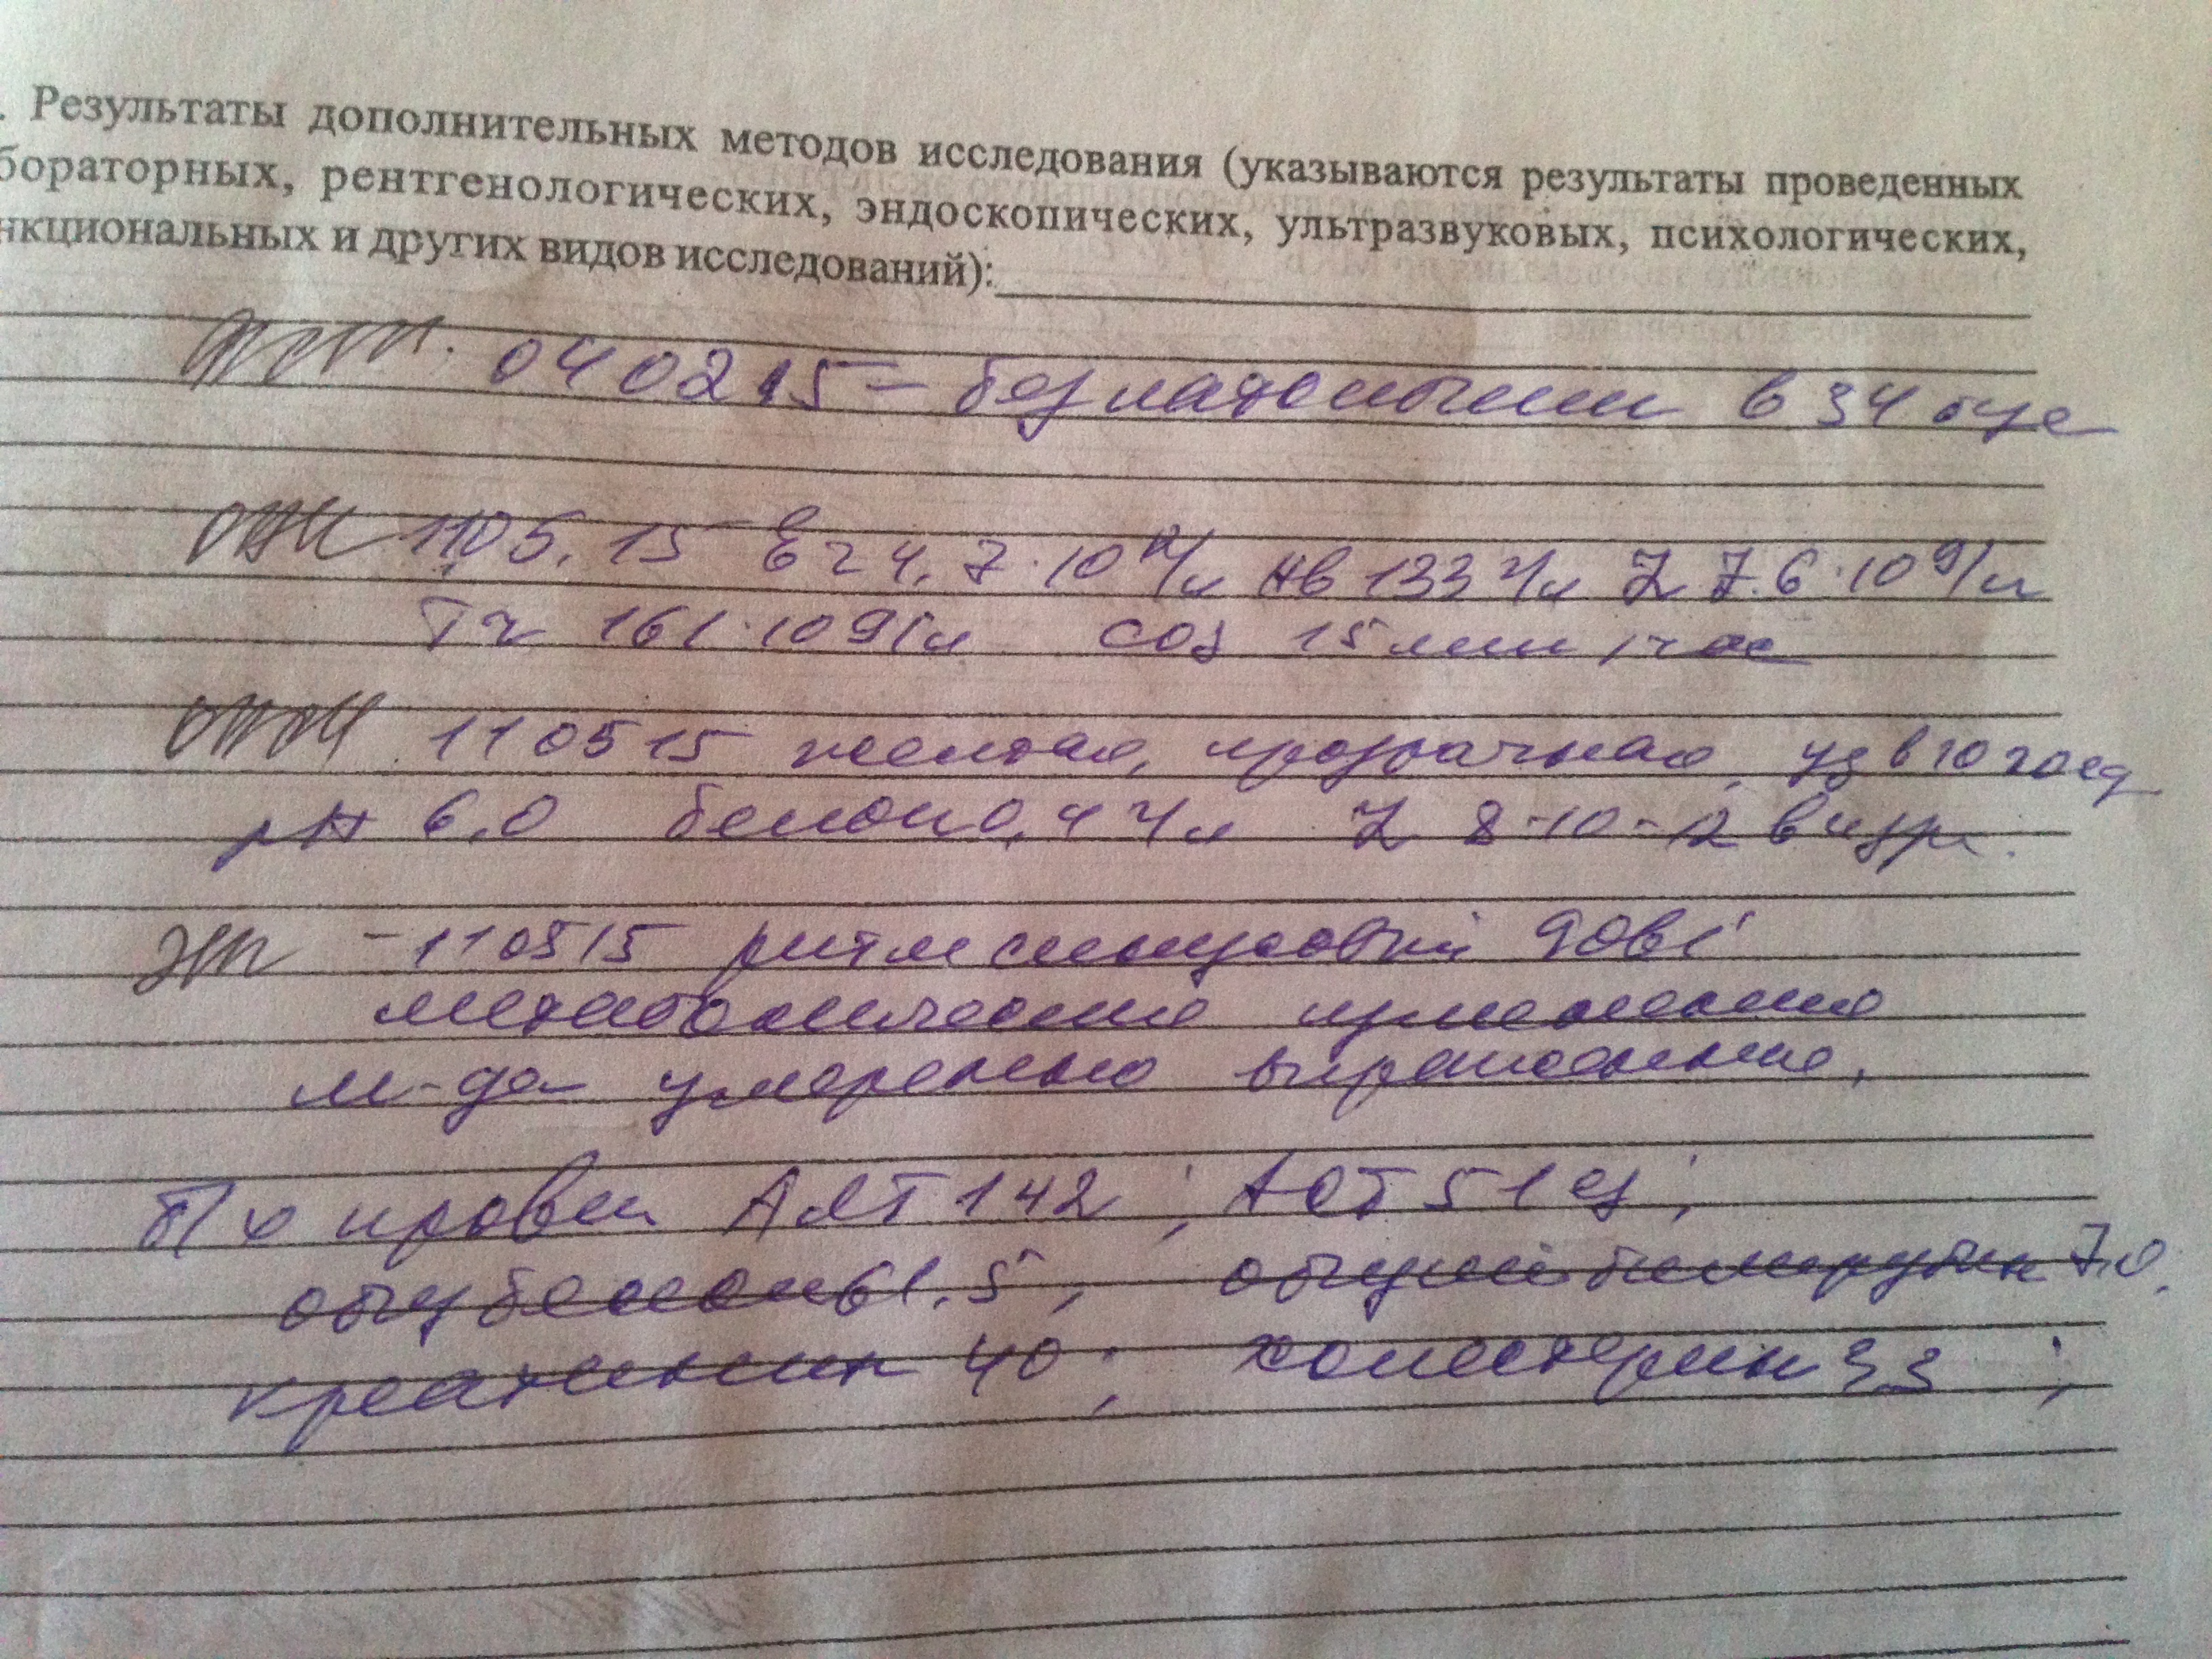 . Результаты дополнительных методов исследования (указываются результаты проведенных
бораторных, рентгенологических, эндоскопических, ультразвуковых, психологических,
нкциональных и других видов исследований):
040215 – без патологии в 34
ОАК 1105.15 Er 4.7·10¹²/л Нв 133 г/л L 7.6·10⁹/л
Тr 161·109/л соэ 15 мм/час
ОАМ 110515 желтая, прозрачная, уд в 1020 ед
рН 6,0 белок 0,4 г/л L 8-10-12 в п/зр.
ЭКГ – 110515 ритм синусовый 90 в 1'
метаболические изменения
м-да умеренно выраженные.
Б/х крови АЛТ 142 ; АСТ 51 ед ;
общ белок 61.5 , общий билирубин 7.0,
креатинин 40 ; холестерин 3.3 ;